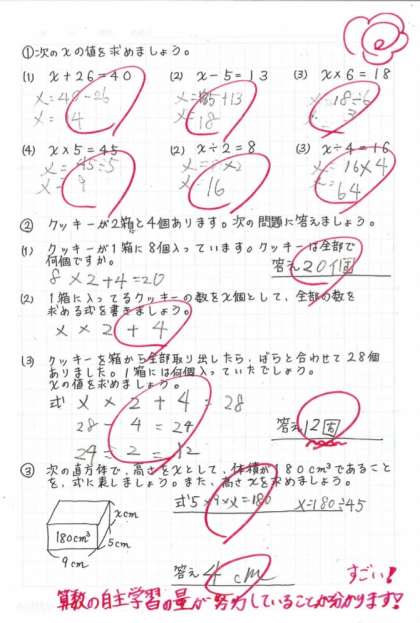 ①次のxの値を求めましょう。
(1) x+26=40 (2) x-5=13 (3) x×6=18
x=40-26 x=5+13 x=18÷6
x= 4 x=18 x= 3
(4) x×5=45 (2) x÷2=8 (3) x÷4=16
x=45÷5 x=8×2 x=16×4
x=9 x=16 x=64
② クッキーが2箱と4個あります。次の問題に答えましょう。
(1) クッキーが1箱に8個入っています。クッキーは全部で
何個ですか。 答え20個
8×2+4=20
(2) 1箱に入ってるクッキーの数をx個として、全部の数を
求める式を書きましょう。
x×2+4
(3) クッキーを箱から全部取り出したら、ばらと合わせて28個
ありました。1箱には何個入っていたでしょう。
xの値を求めましょう。
式 x×2+4=28
28-4=24 答え12個
24÷2=12
③ 次の直方体で、高さをxとして、体積が180cm³であること
を、式に表しましょう。また、高さxを求めましょう。
式5×9×x=180 x=180÷45
xcm
180cm³
5cm
9cm
答え4cm
すごい!
算数の自主学習の量が努力していることが分かります!